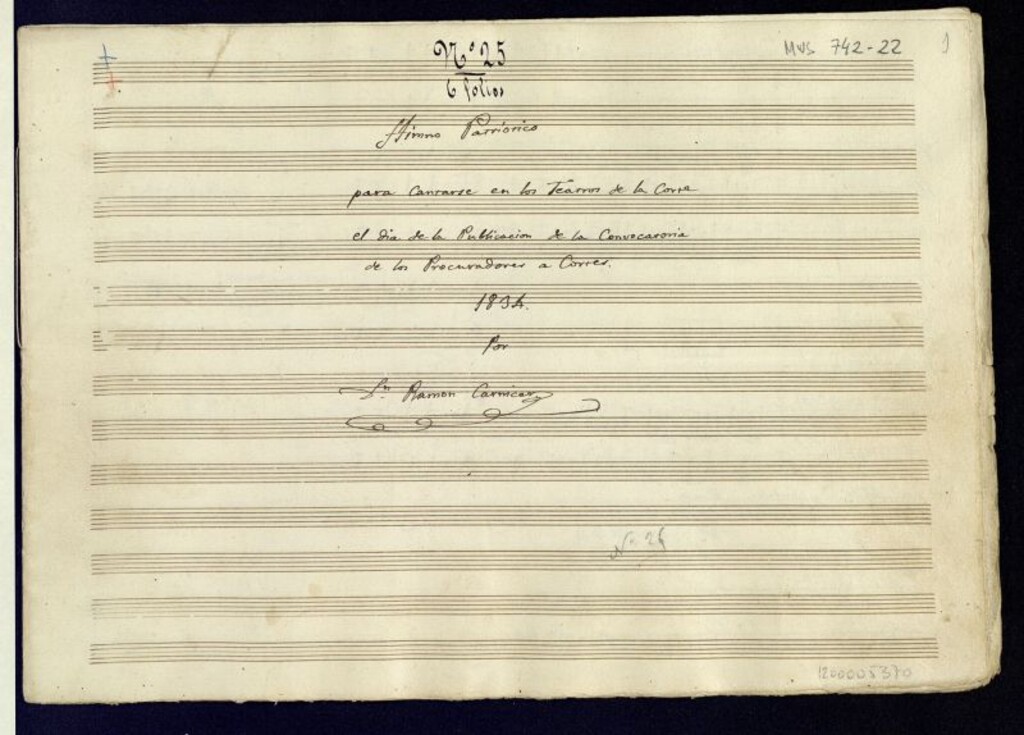 Nº 25
MUS 742-22
1
6 folios
Himno Patriotico
para Cantarse en los Teatros de la Corte
el dia de la Publicacion de la Convocatoria
de los Procuradores a Cortes.
1834.
Por
Dn. Ramon Carnicer
Nº 25
1200005370